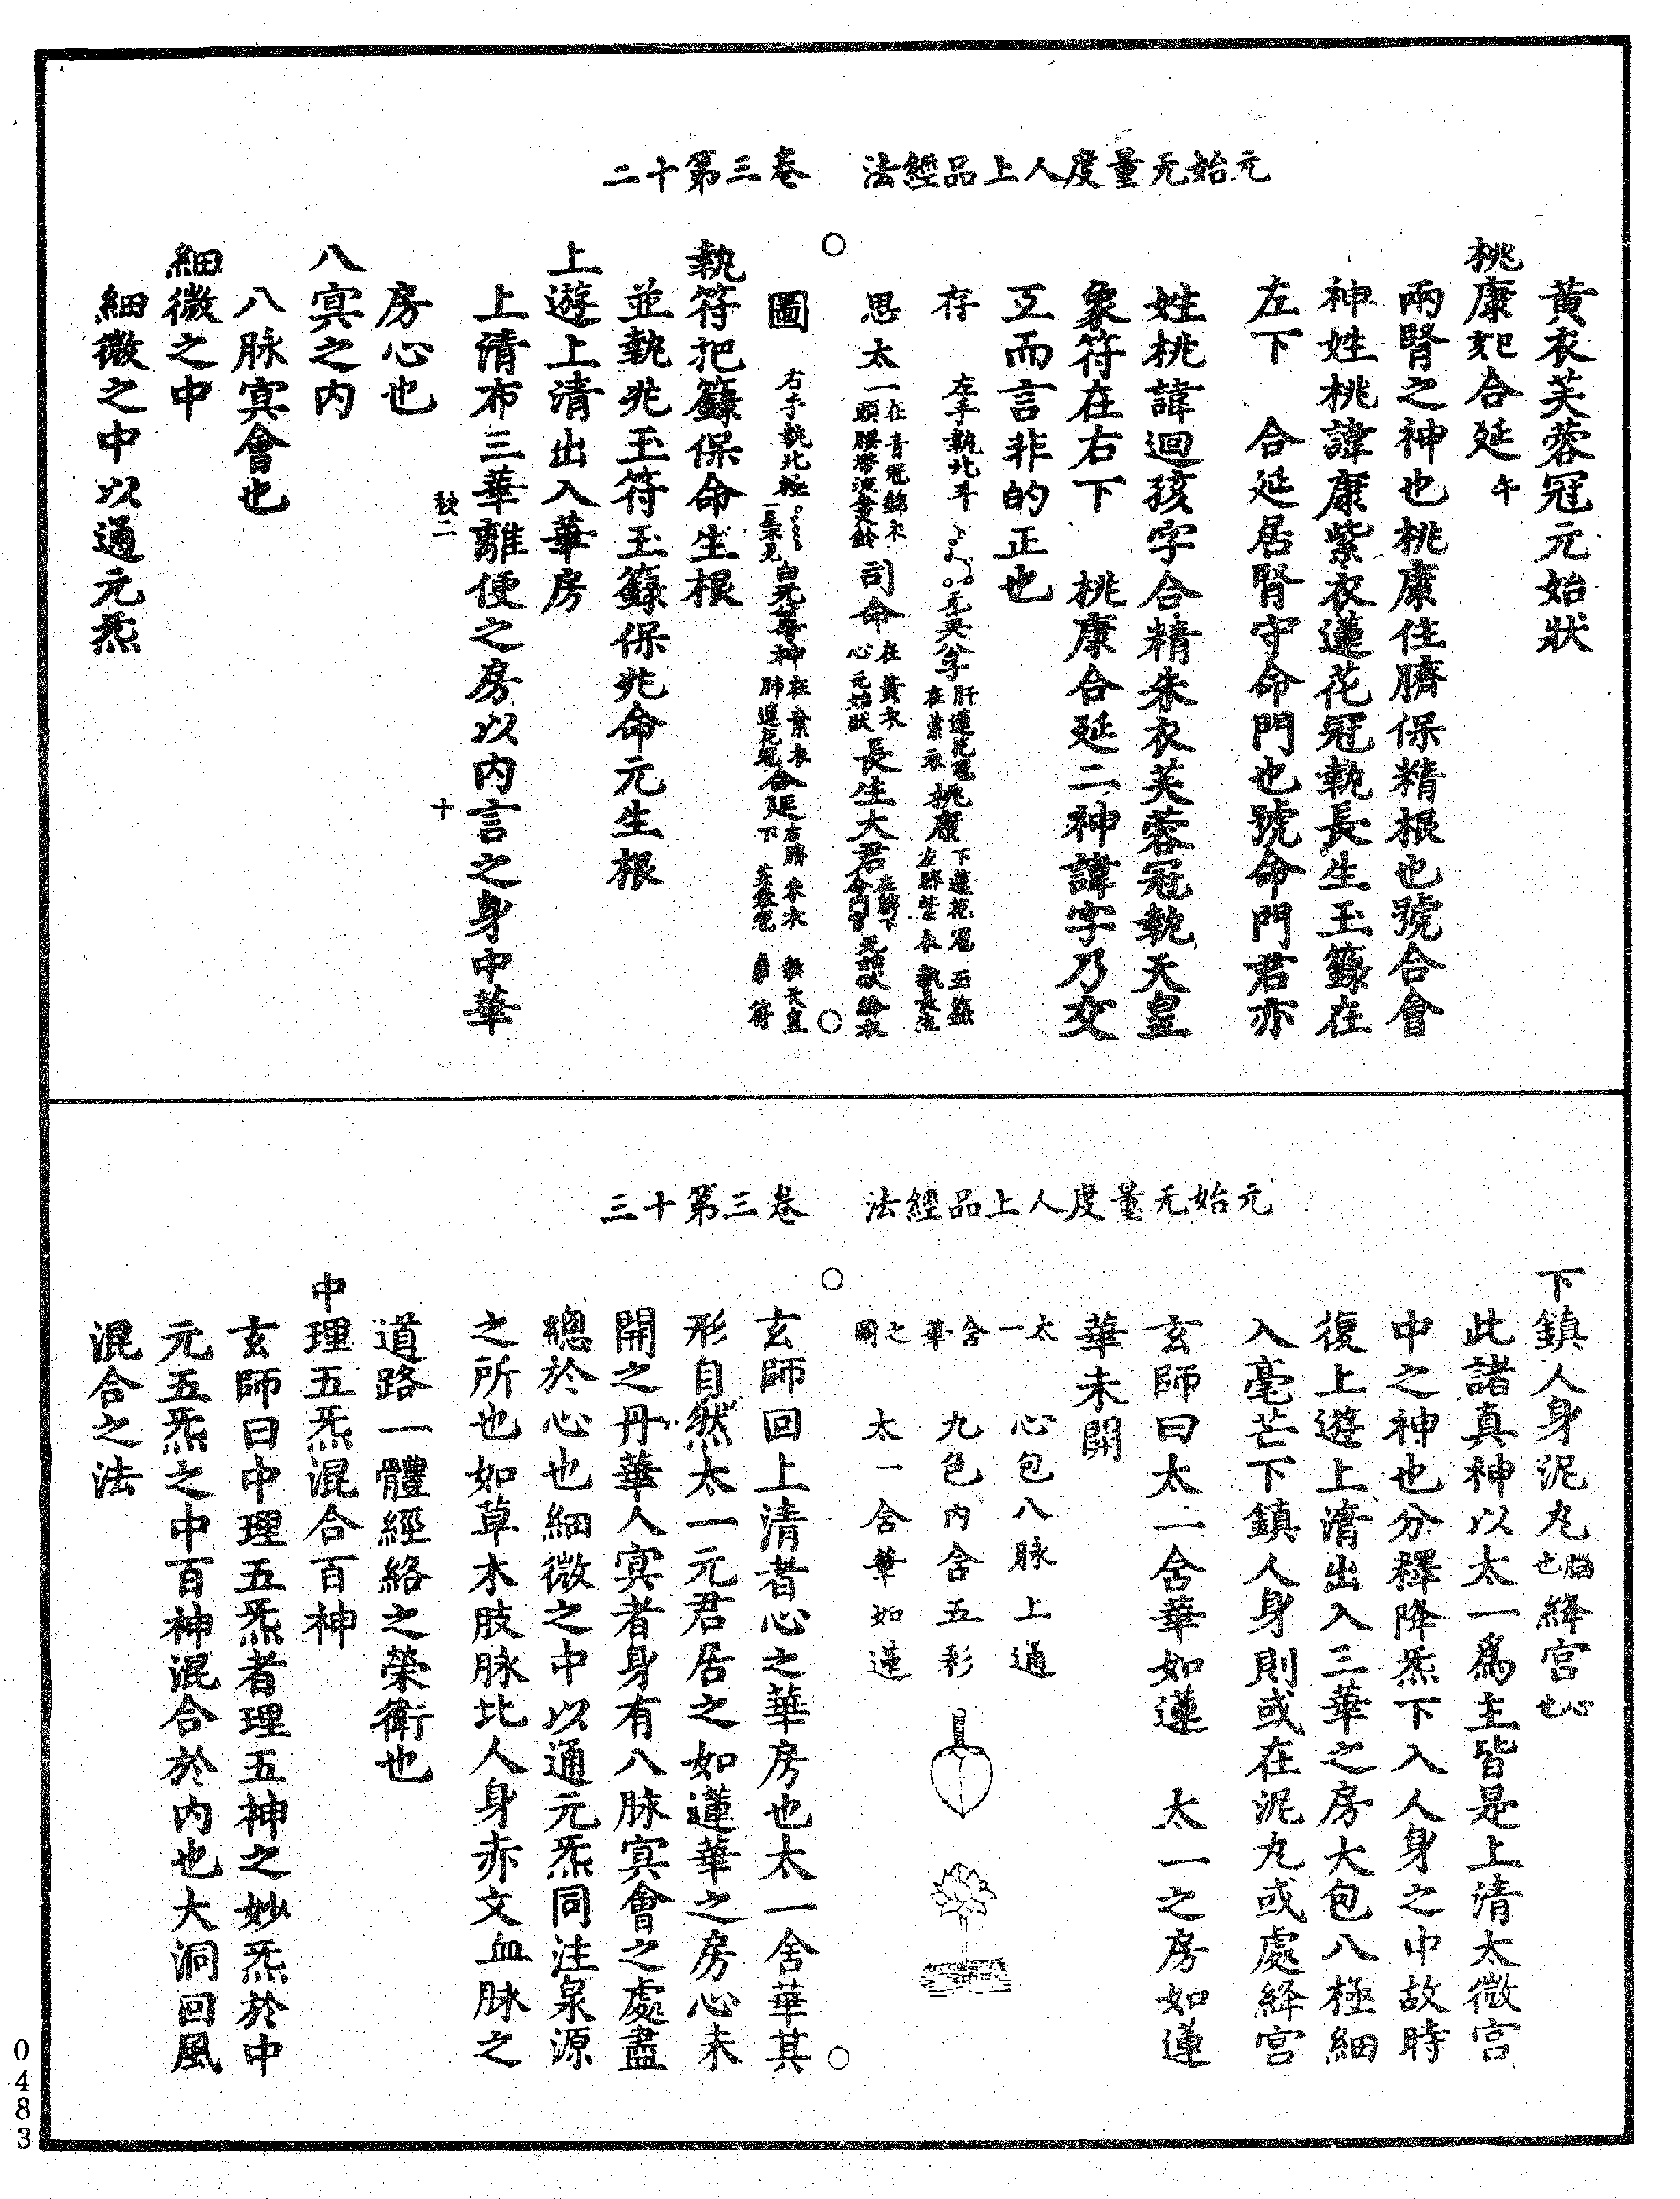 元始无量度人上品經法　卷三第十二
黃衣芙蓉冠元始狀
桃康䂀合延午
兩腎之神也桃康住臍保精根也號合會
神姓桃諱康紫衣蓮花冠執長生玉籙在
左下　合延居腎守命門也號命門君亦
姓桃諱迴孩字合精朱衣芙蓉冠執天皇
象符在右下　桃康合延二神諱字乃交
互而言非的正也
存　左手執北斗　无英公子肝蓮花冠在紫衣　桃康下蓮花冠玉籙左臍紫衣執長生
思　太一在青冠錦衣頭腰帶流金火鈴　司命在黃衣心元始狀　長生大君在臍下命門
圖　右手執北極　白元尊神在素衣肺蓮花冠　合延右臍朱衣執天皇下芙蓉冠象符
執符把籙保命生根
並執兆玉符玉籙保兆命元生根
上遊上清出入華房
上清布三華離便之房以內言之身中華
敊二　十
房心也
八㝠之內
八脉㝠會也
細微之中
細微之中以通元炁
元始无量度人上品經法　卷三第十三
下鎮人身泥丸腦也絳宮心也
此諸真神以太一為主皆是上清太微宮
中之神也分釋降炁下入人身之中故時
復上遊上清出入三華之房大包八極細
入毫芒下鎮人身則或在泥丸或處絳宮
玄師曰太一含華如蓮　太一之房如蓮
華未開
太一含華之圖
心包八脉上通
九色內含五彩
太一含華如蓮
玄師回上清者心之華房也太一含華其
形自然太一元君居之如蓮華之房心未
開之丹華人㝠者身有八脉㝠會之處盡
總於心也細微之中以通元炁同注泉源
之所也如草木肢脉比人身赤文血脉之
道路一體經絡之榮衛也
中理五炁混合百神
玄師曰中理五炁者理五神之妙炁於中
元五炁之中百神混合於內也大洞回風
混合之法
0483